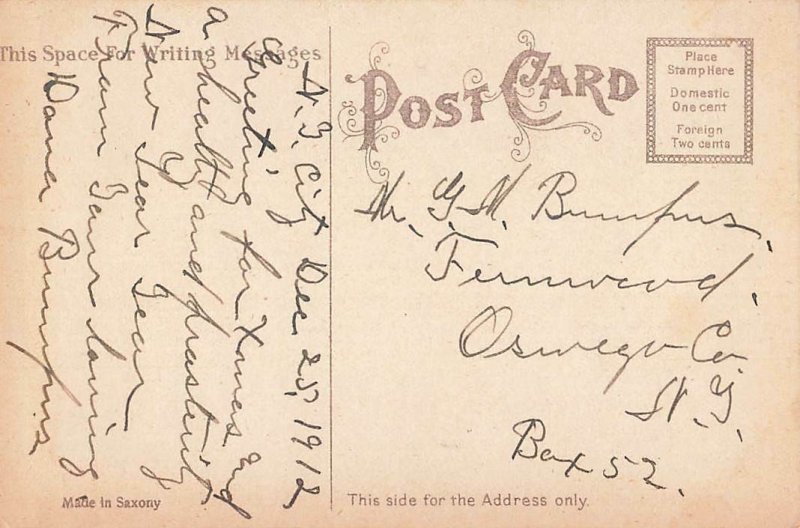 This Space For Writing Messages
N.Y. City Dec 25, 1912
Greeting for Xmas and
a healthy and prosterity
New Year Dear
From Your loving
Dana Bumpus
Made in Saxony
POST CARD
Place
Stamp Here
Domestic
One cent
Foreign
Two cents
Mr. G. M. Bumpus.
Fernwood.
Oswego Co
N. Y.
Box 52.
This side for the Address only.